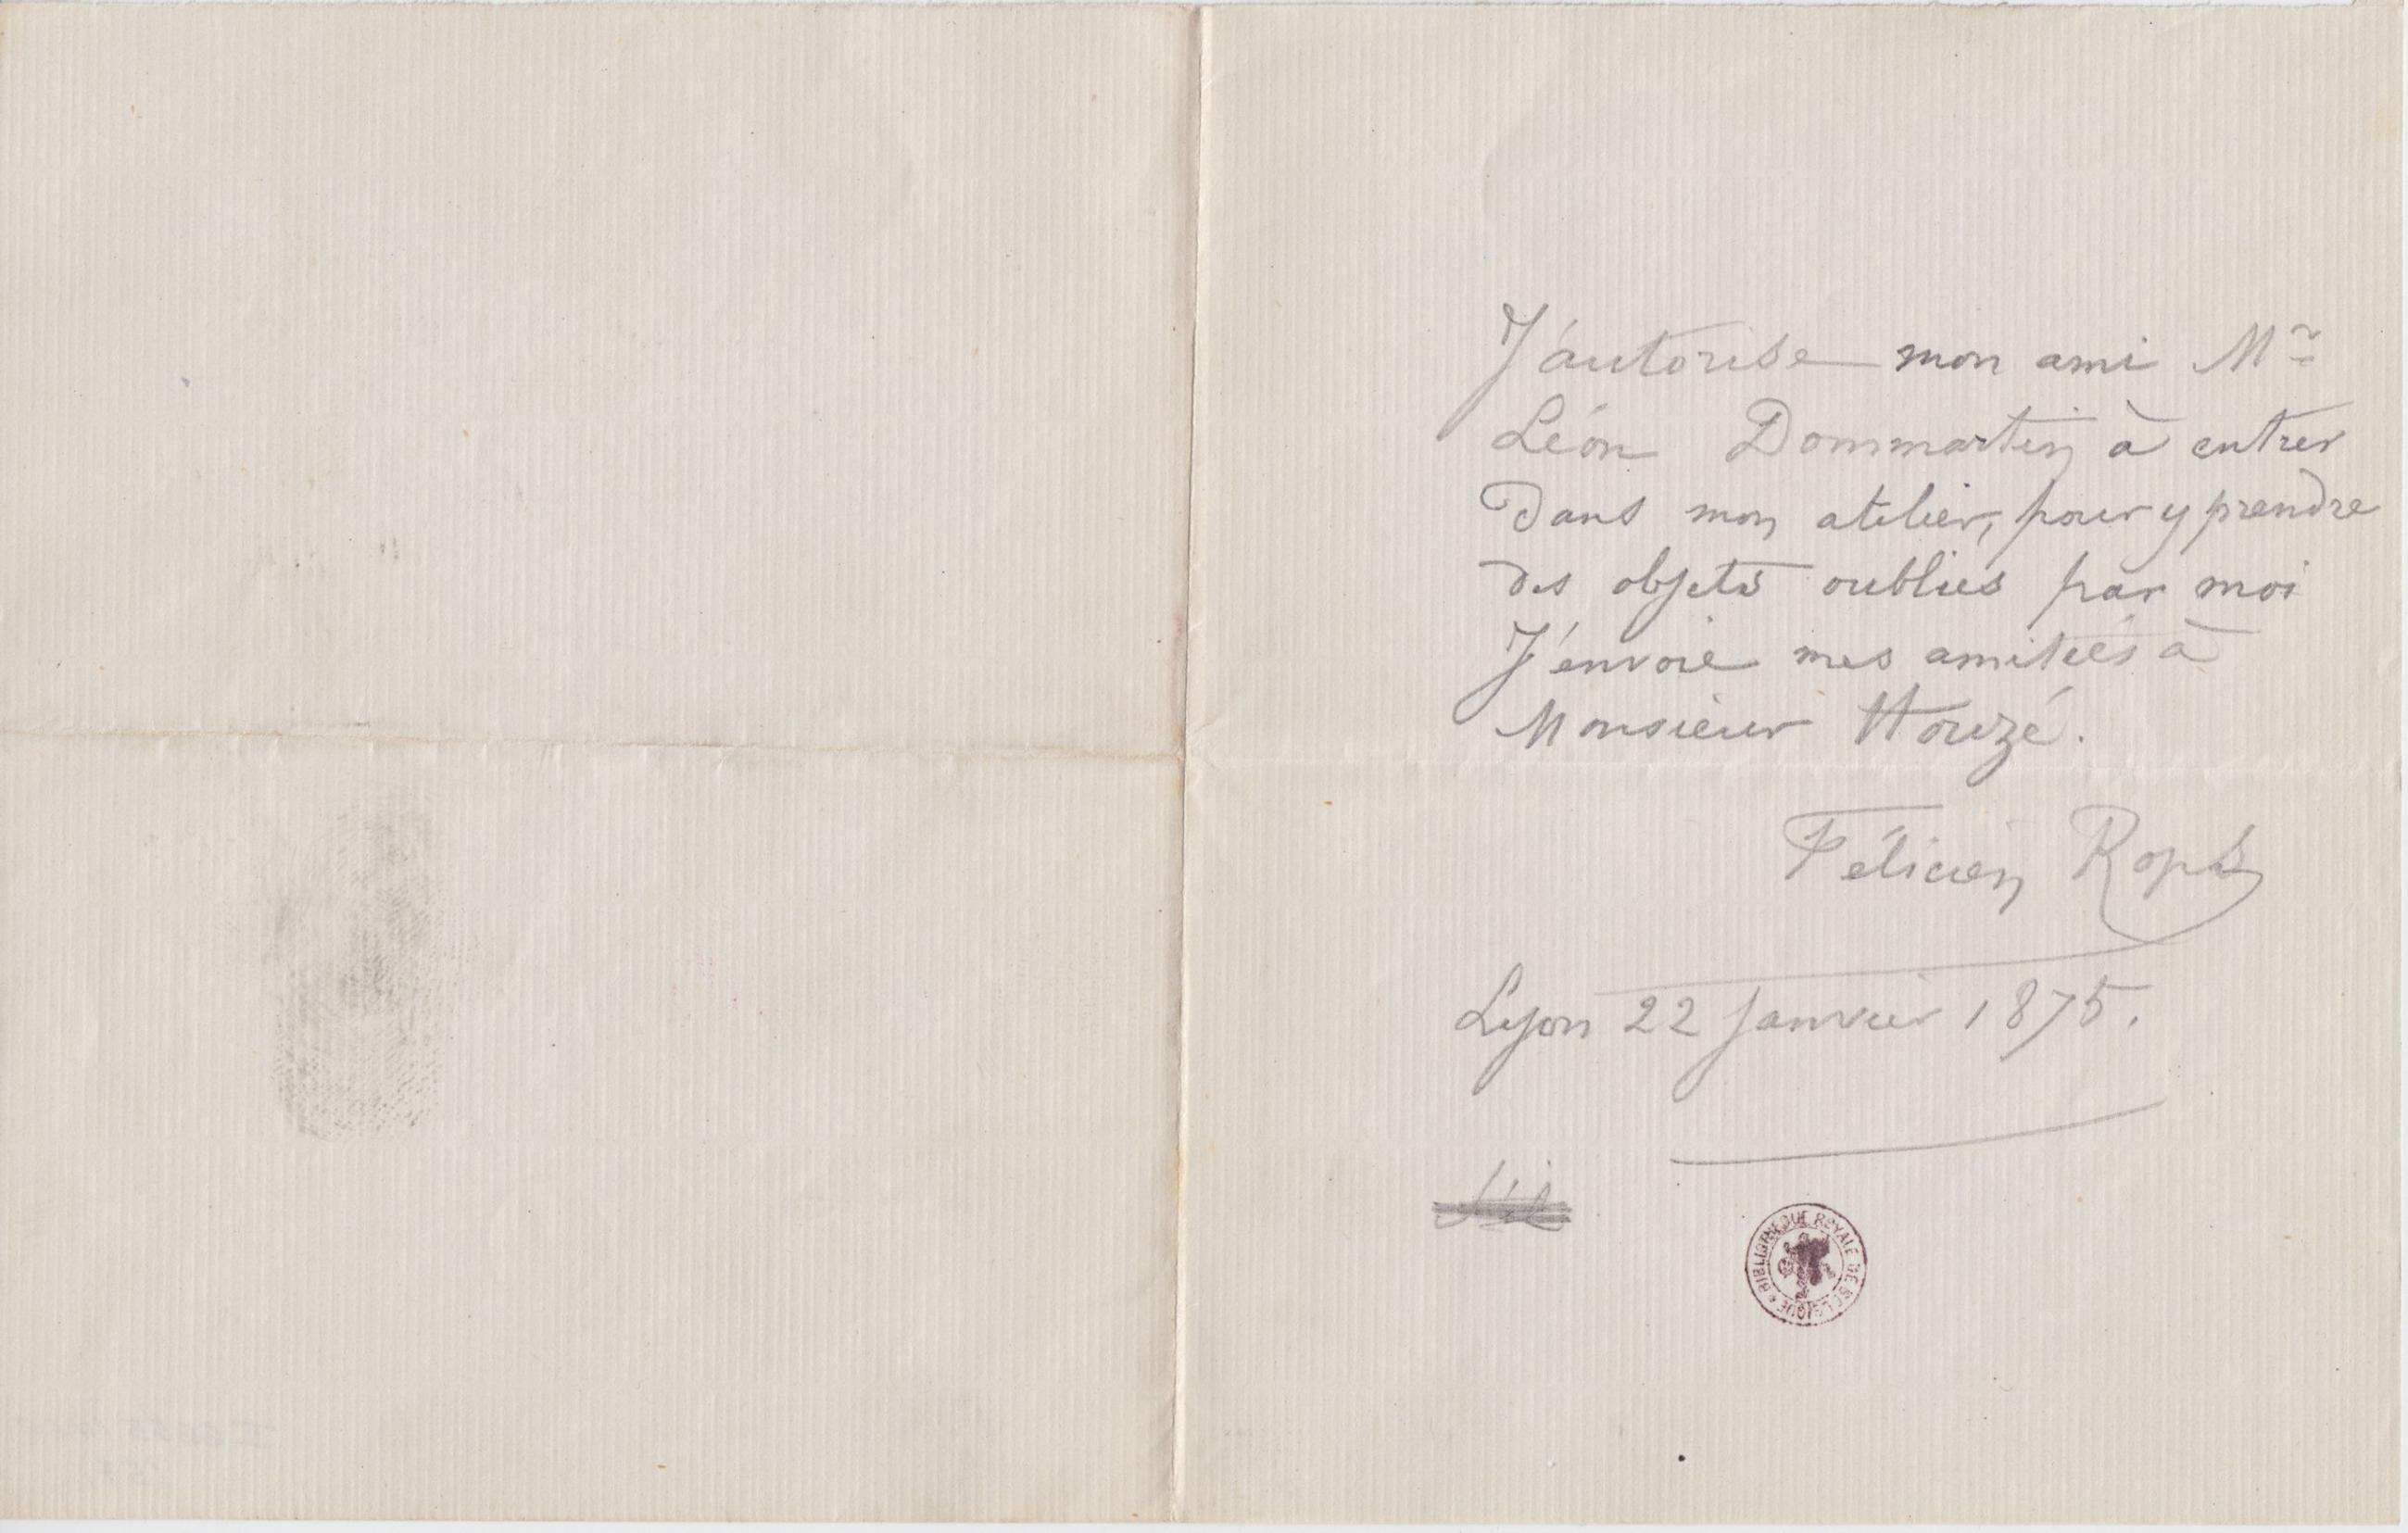 J'autorise mon ami Mr
Léon Dommartin à entrer
Dans mon atelier, pour y prendre
des objets oubliés par moi
J'envoie mes amitiés à
Monsieur Houzé.
Félicien Rops
Lyon 22 Janvier 1875.
BIBLIOTHEQUE ROYALE DE BELGIQUE